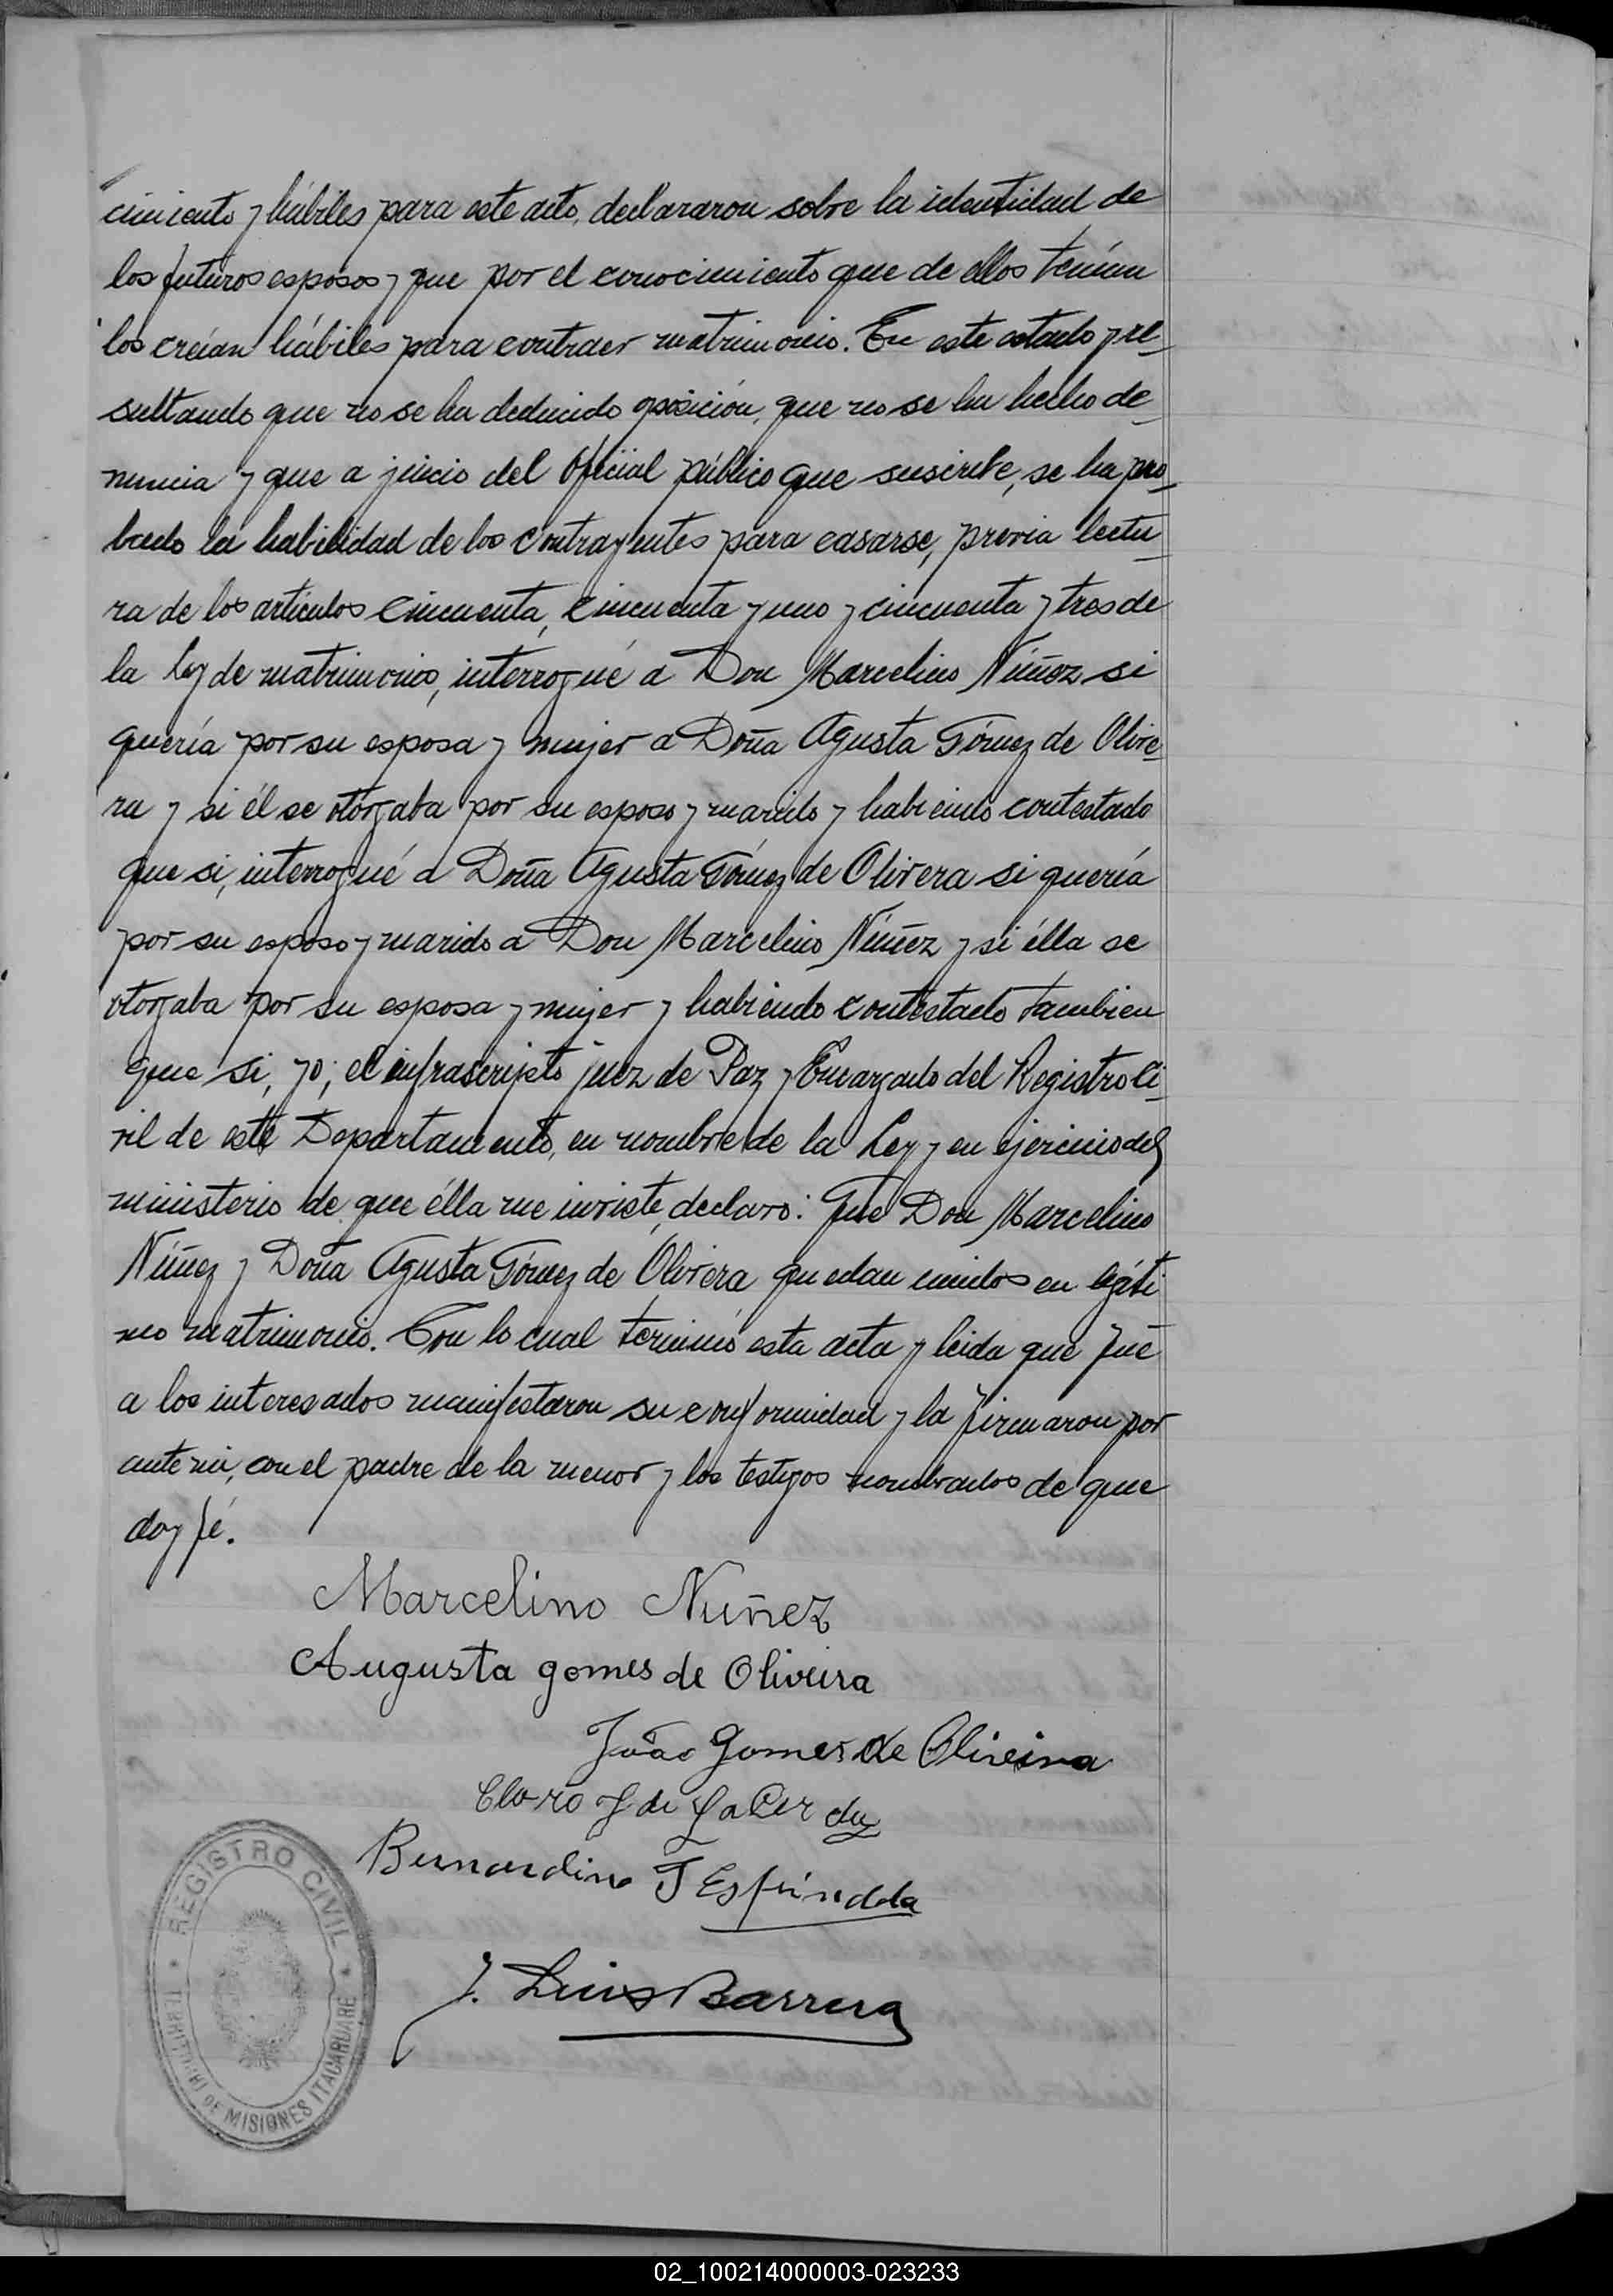 cimiento y hábiles para este acto, declararon sobre la identidad de
los futuros esposos y que por el conocimiento que de ellos tenían
los creían hábiles para contraer matrimonio. En este estado y re-
sultando que no se ha deducido oposición, que no se ha hecho de-
nuncia y que a juicio del Oficial público que suscribe, se ha pro-
bado la habilidad de los contrayentes para casarse, previa lectu-
ra de los artículos cincuenta, cincuenta y uno y cincuenta y tres de
la Ley de matrimonio, interrogué a Don Marcelino Núñez si
quería por su esposa y mujer a Doña Agusta Gómez de Olive-
ra y si él se otorgaba por su esposo y marido y habiendo contestado
que si, interrogué a Doña Agusta Gómez de Olivera si quería
por su esposo y marido a Don Marcelino Núñez y si élla se
otorgaba por su esposa y mujer y habiendo contestado tambien
que si, yo, el infrascripto juez de Paz y Encargado del Registro Ci-
vil de este Departamento, en nombre de la Ley y en ejercicio del
ministerio de que élla me inviste, declaro: Que Don Marcelino
Núñez y Doña Agusta Gómez de Olivera quedan unidos en legíti-
mo matrimonio. Con lo cual terminó esta acta y leida que fué
a los interesados manifestaron su conformidad y la firmaron por
ante mi, con el padre de la menor y los testigos nombrados de que
doy fé.
Marcelino Nuñez
Augusta gomes de Oliveira
João Gomes de Oliveira
Claro J de La Cerda
Bernardino T Espíndola
J. Luis Barrera
REGISTRO CIVIL
TERRITORIO DE MISIONES ITACARUARE
02_100214000003-023233